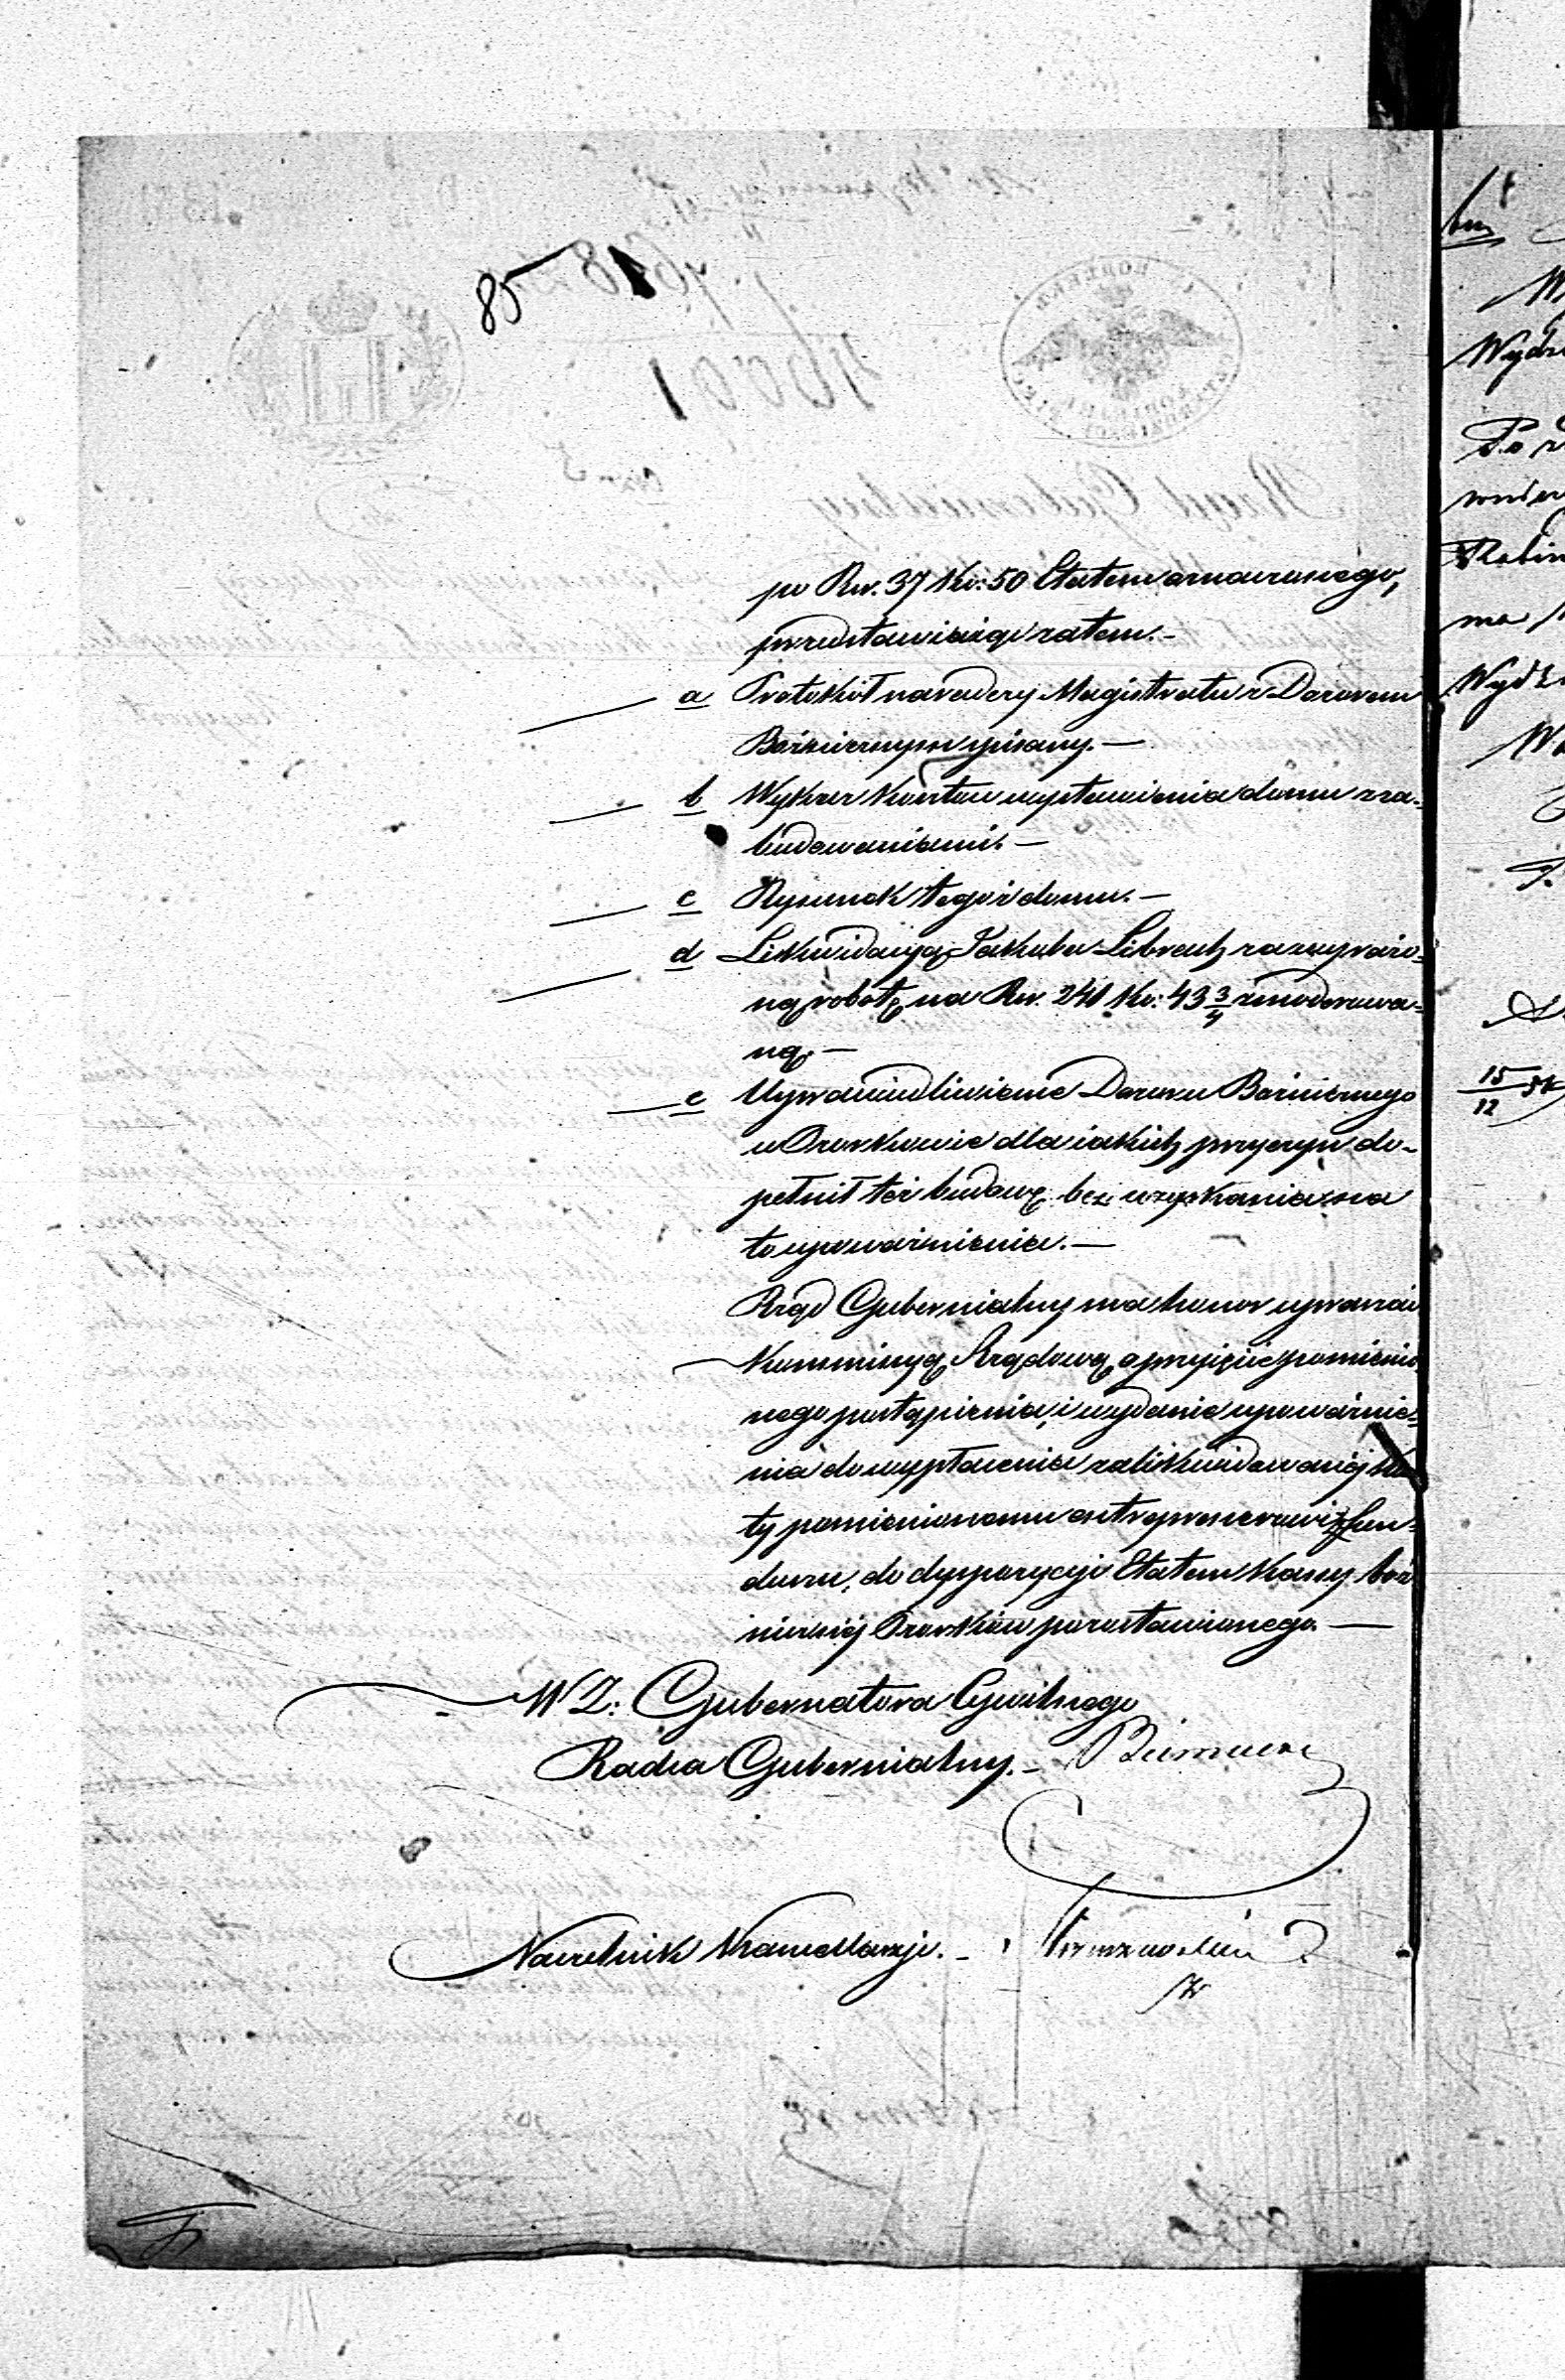 85
po Rsr. 37 Ko: 50 Etatem oznaczonego,
przedstawiając zatem.-
a Protokół naradczy Magistratu z Dozorem
Bóżniczym spisany.—
b Wykaz kosztów wystawienia domu z za-
budowaniami.—
c Rysunek tegoż domu.—
d Likwidacyą Jakuba Librach za wyrażo-
ną robotę na Rsr. 241 Ko: 43 3/4 zmoderowa-
ną.—
e Usprawiedliwienie Dozoru Bóżniczego
w Ozorkowie dla jakich przyczyn do-
pełnił téż budowę bez uzyskania na
to upoważnienia.—
Rząd Gubernialny ma honor upraszać
Kommissyą Rządową o przyjęcie pomienio
nego postąpienia, i wydanie upoważnie-
nia do wypłacenia zalikwidowanéj kwo
ty pomienionemu entreprenerowi z fun-
duszu, do dyspozycyi Etatem Kassy bóż
niczéj Ozorków pozostawionego.—
W Z: Gubernatora Cywilnego
Radca Gubernialny.-
Naczelnik Kancellaryi.-
15/12